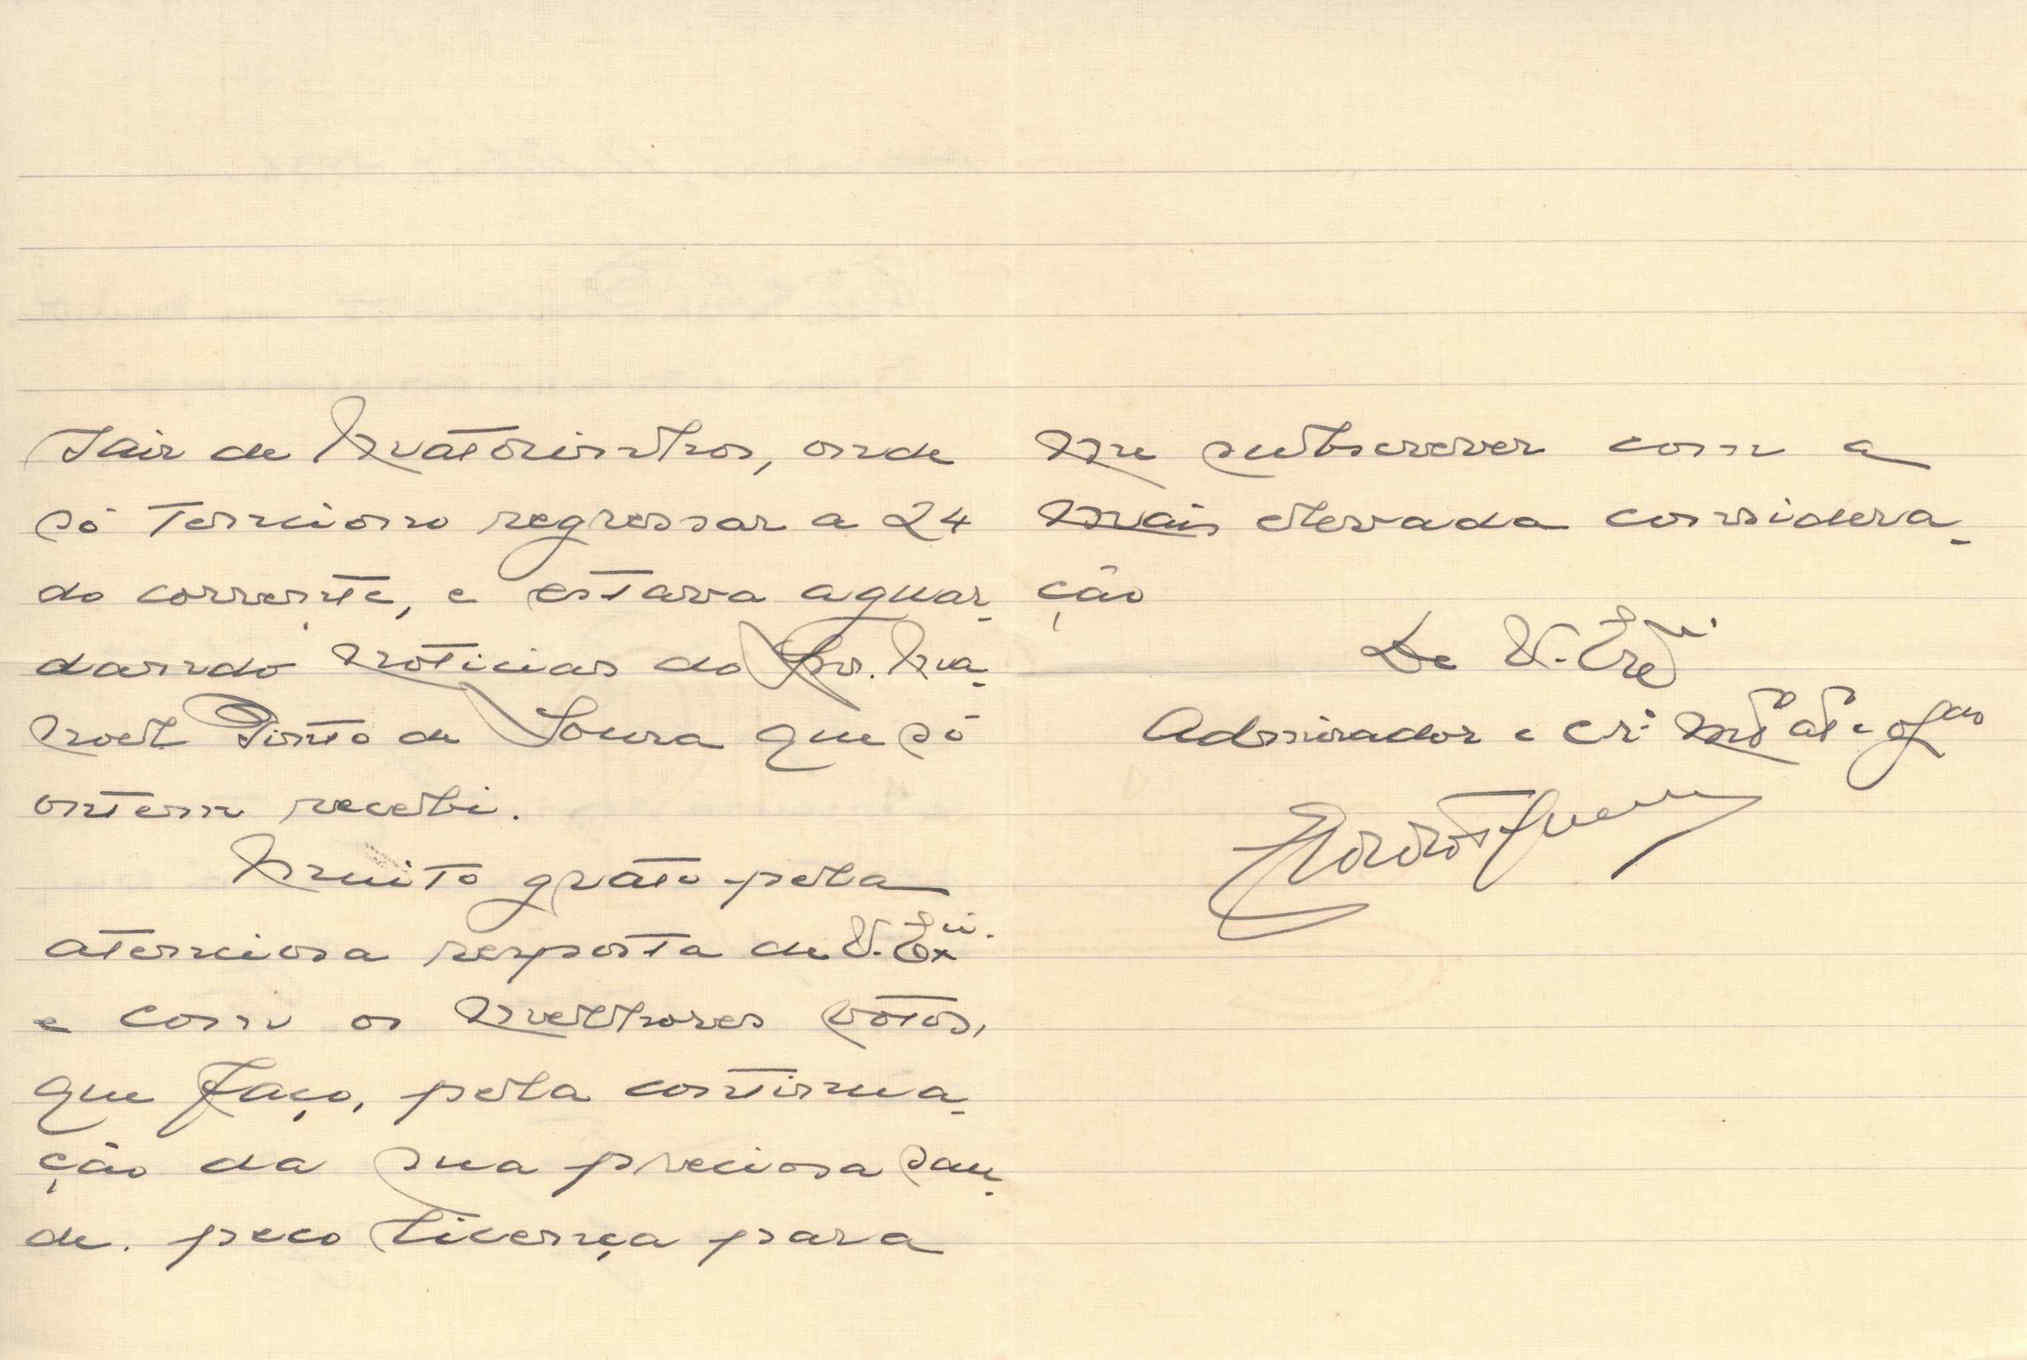 sair de Matosinhos, onde
só tenciono regressar a 24
do corrente, e estava aguar-
dando noticias do Snr. Ma-
noel Pinto de Sousa que só
ontem recebi.
Muito grato pela
atenciosa resposta de V. Exª.
e com os melhores votos,
que faço, pela continua-
ção da sua preciosa sau-
de. peco licença para
me subscrever com a
mais elevada considera-
ção
De V. Exª.
Admirador e Crº. Mtº attº e